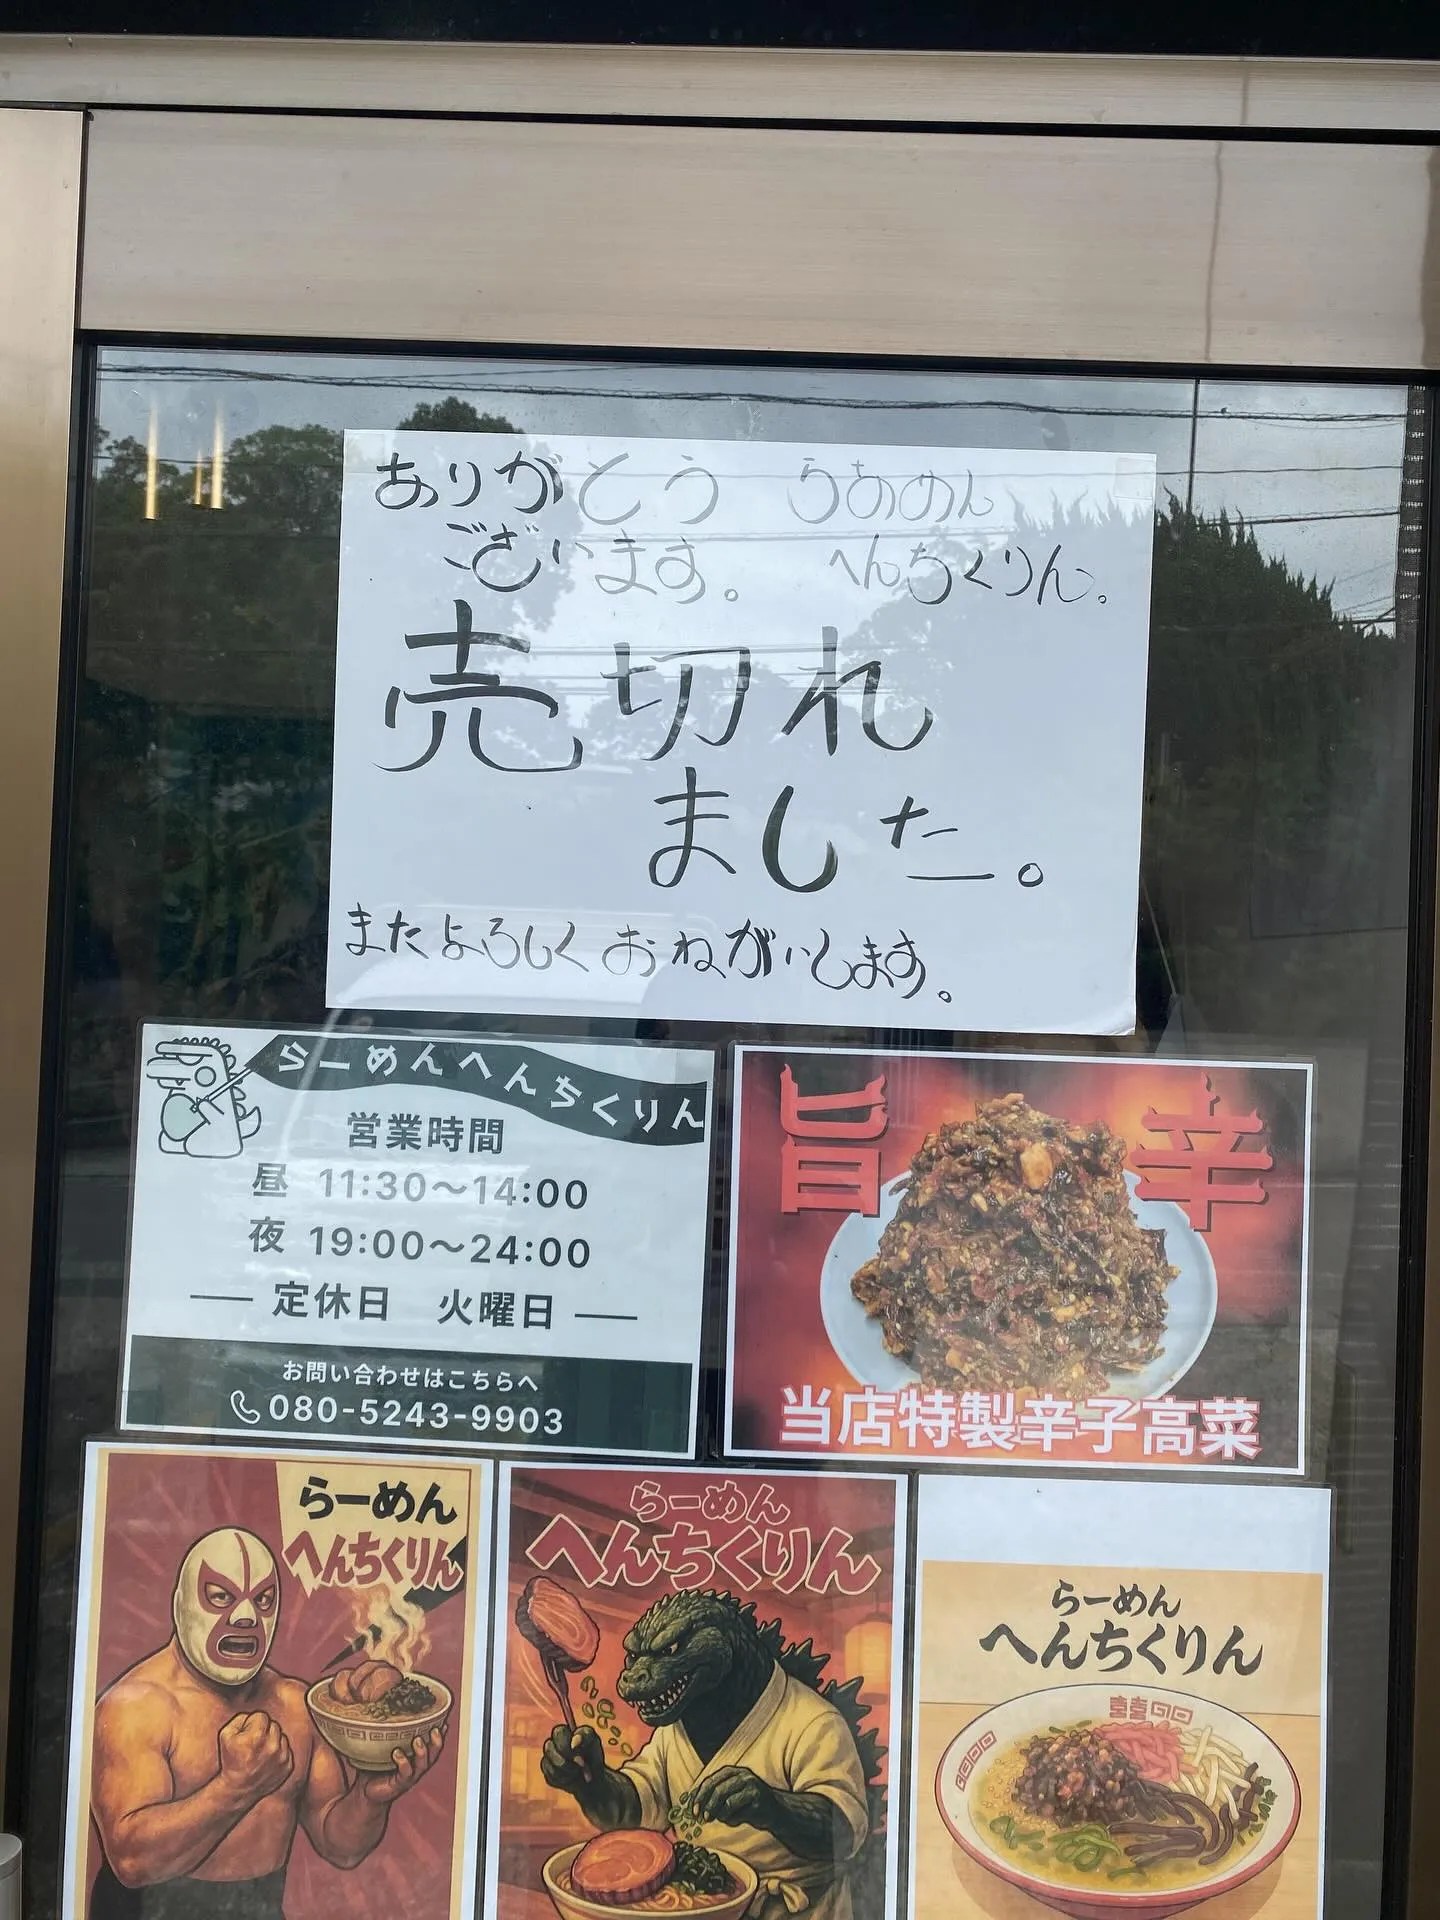 ありがとう
ございます。
らあめん
へんちくりん。
売切れ
ました。
またよろしくおねがいします。
らーめんへんちくりん
営業時間
昼 11:30〜14:00
夜 19:00〜24:00
定休日 火曜日
お問い合わせはこちらへ
080-5243-9903
旨 辛
当店特製辛子高菜
らーめん
へんちくりん
らーめん
へんちくりん
らーめん
へんちくりん